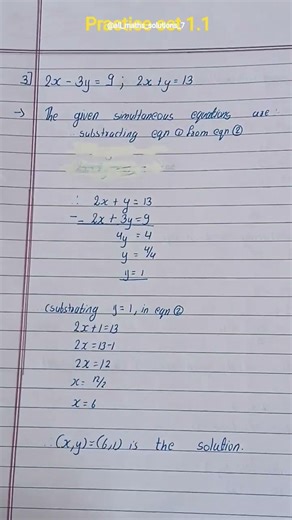 Practice set 1.1
@all_maths_solutions_7
3] 2x - 3y = 9 ; 2x + y = 13
→ The given simultaneous equations are :
substracting eqn ① from eqn ②
∴ 2x + y = 13
- - 2x + 3y = 9
4y = 4
y = 4/4
y = 1
(substrating y = 1, in eqn ②
2x + 1 = 13
2x = 13 - 1
2x = 12
x = 12/2
x = 6
∴ (x, y) = (6, 1) is the solution.